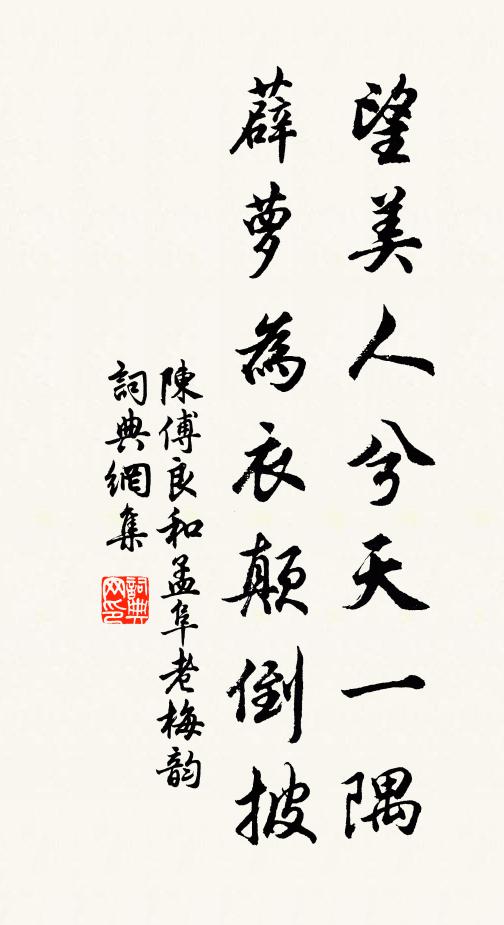 望美人兮天一隅
薜萝為衣顛倒披
陳傅良和孟阜老梅韵
詞典網集
詞典网印